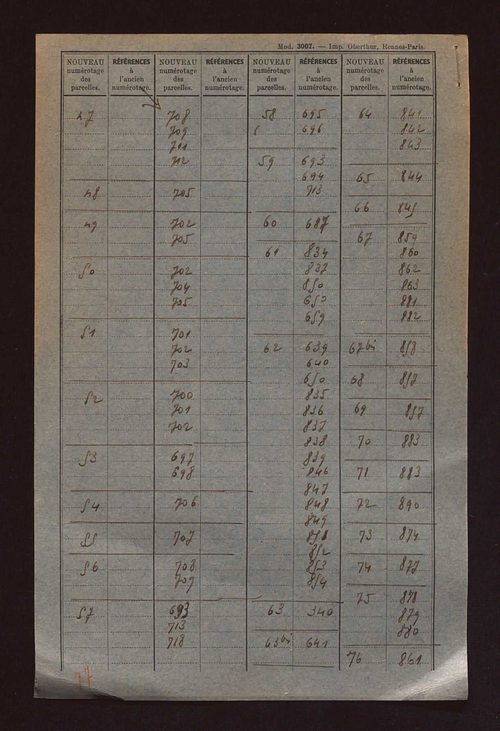 Mod. 3007. — Imp. Oberthur, Rennes-Paris.
NOUVEAU numérotage des parcelles.
RÉFÉRENCES à l'ancien numérotage.
NOUVEAU numérotage des parcelles.
RÉFÉRENCES à l'ancien numérotage.
NOUVEAU numérotage des parcelles.
RÉFÉRENCES à l'ancien numérotage.
NOUVEAU numérotage des parcelles.
RÉFÉRENCES à l'ancien numérotage.
47 708
709
711
712
48 705
49 702
705
50 702
704
705
51 701
702
703
52 700
701
702
53 697
698
54 706
55 707
56 708
707
57 693
713
718
58 695
696
59 693
694
713
60 687
61 834
837
850
659
62 639
640
650
835
836
837
838
839
846
847
848
849
852
853
854
63 340
63bis 641
64 841
842
843
65 844
66 845
67 859
860
862
863
881
882
67bis 858
68 857
69 857
70 883
71 883
72 890
73 874
74 877
75 878
879
880
76 861